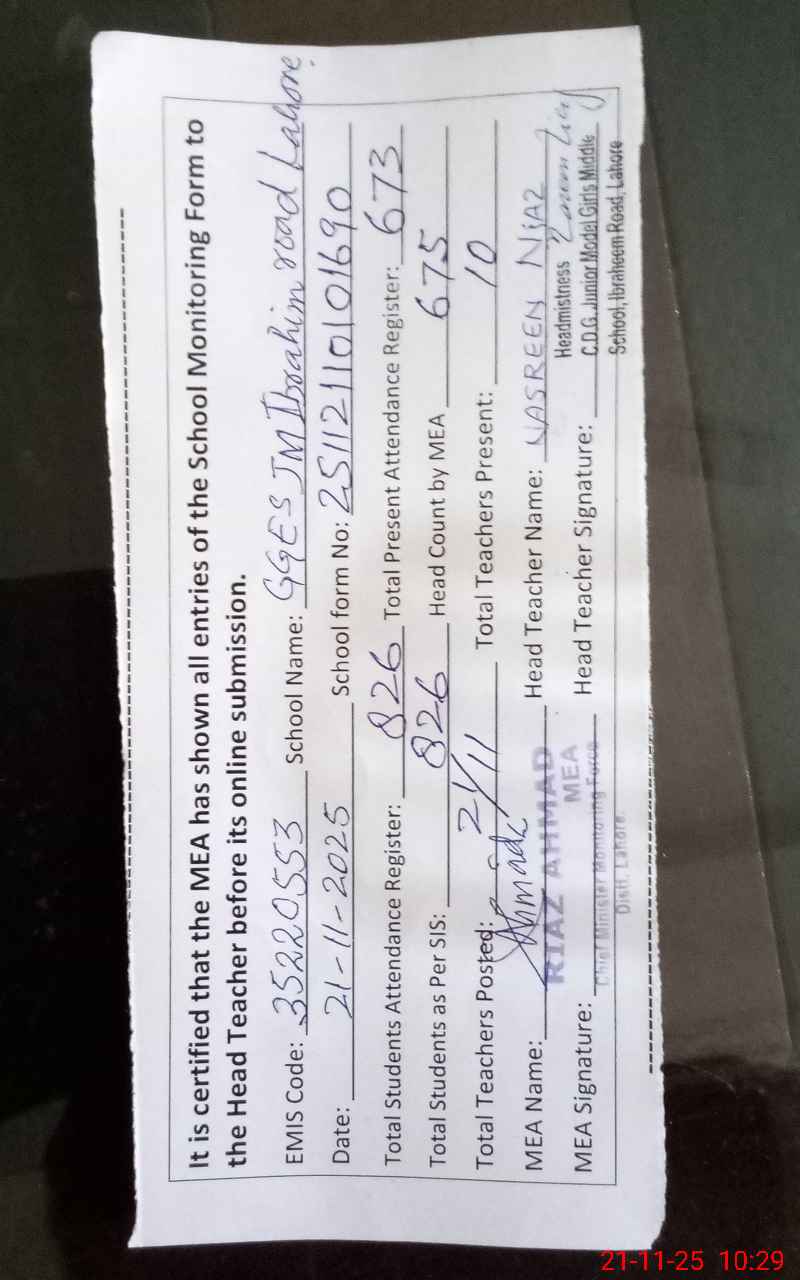 It is certified that the MEA has shown all entries of the School Monitoring Form to
the Head Teacher before its online submission.
EMIS Code: 35220553 School Name: GGES JM Ibrahim road Lahore.
Date: 21-11-2025 School form No: 2511211010101690
Total Students Attendance Register: 826 Total Present Attendance Register: 673
Total Students as Per SIS: 826 Head Count by MEA 675
Total Teachers Posted: 11 Total Teachers Present: 10
MEA Name: Ahmad 21/11 Head Teacher Name: NASREEN NIAZ
RIAZ AHMAD
MEA
MEA Signature: Chief Minister Monitoring Force Head Teacher Signature:
Distt. Lahore.
Headmistness
C.D.G. Junior Model Girls Middle
School, Ibraheem Road, Lahore
21-11-25 10:29